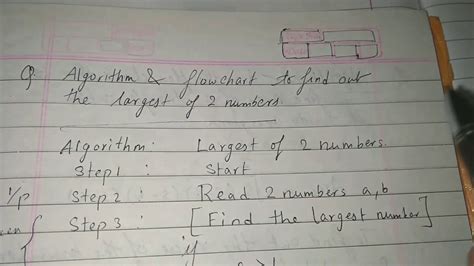 Q. Algorithm & flowchart to find out
the largest of 2 numbers.
Algorithm: Largest of 2 numbers.
Step 1 : Start
I/p Step 2 : Read 2 numbers a,b
Step 3 : [Find the largest number]
if